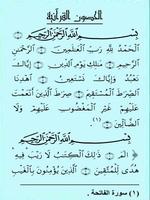 الحصون القرآنية
بِسْمِ اللَّهِ الرَّحْمَنِ الرَّحِيمِ
الْحَمْدُ لِلَّهِ رَبِّ الْعَلَمِينَ الرَّحْمَنِ
الرَّحِيمِ مَلِكِ يَوْمِ الدِّينِ إِيَّاكَ
نَعْبُدُ وَإِيَّاكَ نَسْتَعِينُ اهْدِنَا
الصِّرَطَ الْمُسْتَقِيمَ صِرَطَ الَّذِينَ أَنْعَمْتَ
عَلَيْهِمْ غَيْرِ الْمَغْضُوبِ عَلَيْهِمْ وَلَا
الضَّالِّينَ (١)
بِسْمِ اللَّهِ الرَّحْمَنِ الرَّحِيمِ
الم ذَلِكَ الْكِتَبُ لَا رَيْبَ فِيهِ
هُدًى لِلْمُتَّقِينَ الَّذِينَ يُؤْمِنُونَ بِالْغَيْبِ
(١) سورة الفاتحة .